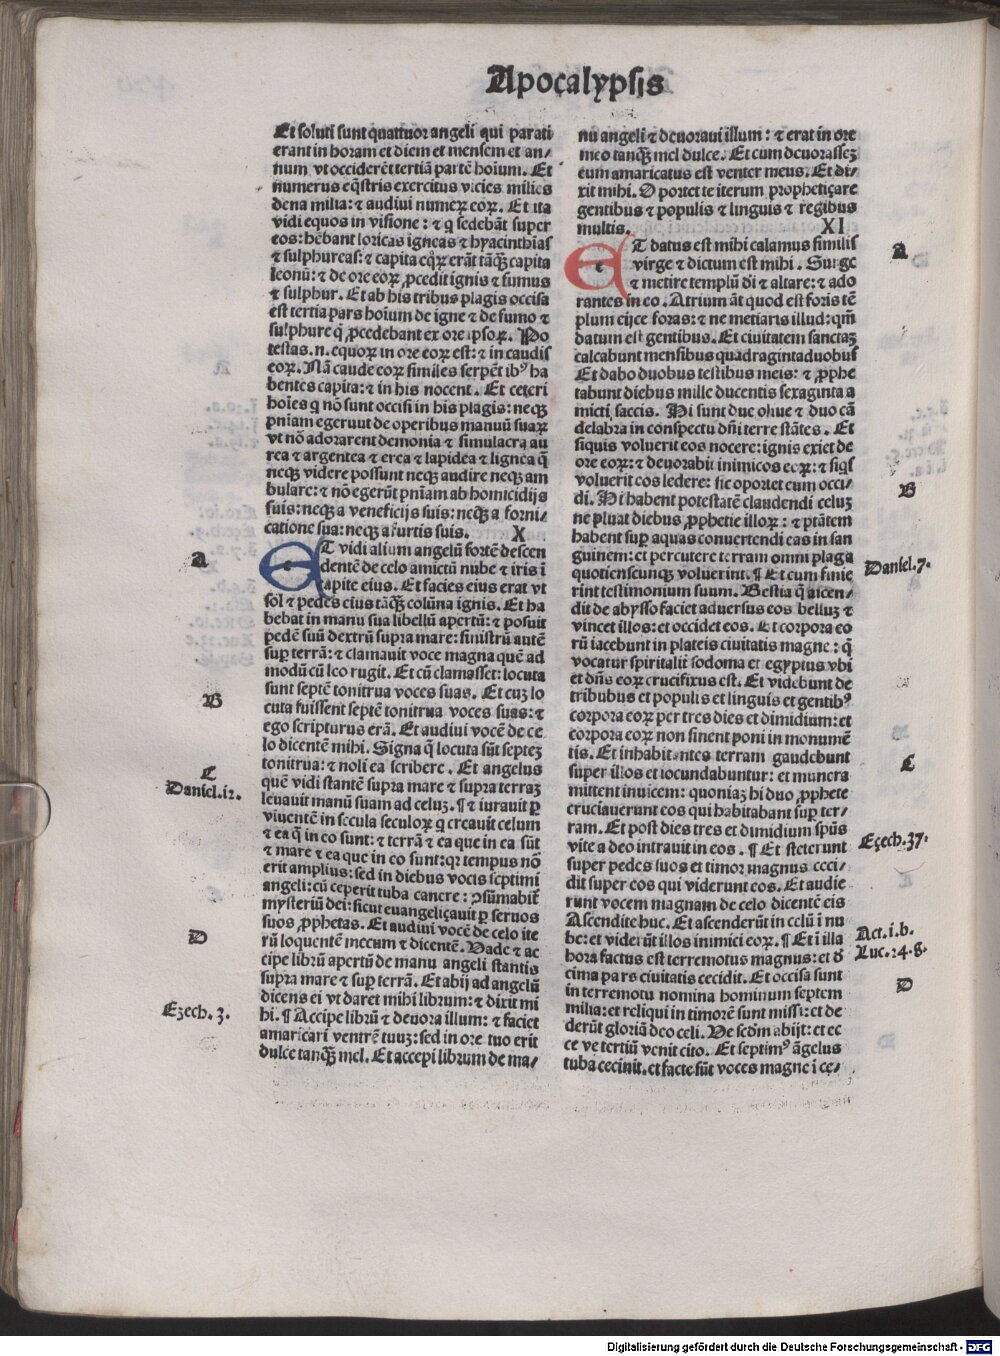 Apocalypsis
Et soluti sunt quattuor angeli qui parati
erant in horam et diem et mensem et an/
num vt occiderēt tertiā partē hoīum. Et
numerus eq̄stris exercitus vicies milies
dena milia: ⁊ audiui numeꝝ eoꝝ. Et ita
vidi equos in visione: ⁊ q̇ sedebāt super
eos: hēbant loricas igneas ⁊ hyacinthīas
⁊ sulphureas: ⁊ capita eqꝝ erāt tāq̄ꝫ capita
leonū: ⁊ de ore eoꝝ ꝓcedit ignis ⁊ fumus
⁊ sulphur. Et ab his tribus plagis occisa
est tertia pars hoīum de igne ⁊ de fumo ⁊
sulphure q̄ ꝓcedebant ex ore ipsoꝝ. Po
testas .n. equoꝝ in ore eoꝝ est: ⁊ in caudis
eoꝝ. Nā caude eoꝝ similes serpēt ibꝰ ha
bentes capita: ⁊ in his nocent. Et ceteri
hoīes q̇ nō sunt occisi in his plagis: neqꝫ
pn̄iam egerunt de operibus manuū suaꝝ
vt nō adorarent demonia ⁊ simulacra au
rea ⁊ argentea ⁊ erea ⁊ lapidea ⁊ lignea q̄
neqꝫ videre possunt neqꝫ audire neqꝫ am
bulare: ⁊ nō egerūt pn̄iam ab homicidijs
suis: neqꝫ a veneficijs suis: neqꝫ a forni/
catione sua: neqꝫ a furtis suis. X
A
ET vidi alium angelū fortē descen
dentē de celo amictū nube ⁊ iris ī
capite eius. Et facies eius erat vt
sol ⁊ pedes eius tāq̄ꝫ colūna ignis. Et ha
bebat in manu sua libellū apertū: ⁊ posuit
pedē suū dextrū supra mare: sinistrū autē
suꝑ terrā: ⁊ clamauit voce magna quē ad
modū cū leo rugit. Et cū clamasset: locuta
B
sunt septē tonitrua voces suas. Et cuꝫ lo
cuta fuissent septē tonitrua voces suas: ⁊
ego scripturus erā. Et audiui vocē de ce
lo dicentē mihi. Signa q̄ locuta sūt septeꝫ
tonitrua: ⁊ noli ea scribere. Et angelus
C
Daniel.12.
quē vidi stantē supra mare ⁊ supra terraꝫ
leuauit manū suam ad celuꝫ. ¶ ⁊ iurauit ꝑ
viuentē in secula seculoꝝ q̇ creauit celum
⁊ ea q̄ in eo sunt: ⁊ terrā ⁊ ea que in ea sūt
⁊ mare ⁊ ea que in eo sunt: qꝛ tempus nō
erit amplius: sed in diebus vocis septimi
angeli: cū ceperit tuba canere: ꝯsūmabit̄
mysteriū dei: sicut euangeliçauit ꝑ seruos
D
suos ꝓphetas. Et audiui vocē de celo ite
rū loquentē mecum ⁊ dicentē. Uade ⁊ ac
cipe librū apertū de manu angeli stantis
supra mare ⁊ suꝑ terrā. Et abij ad angelū
dicens ei vt daret mihi librum: ⁊ dixit mi
Ezech.3.
hi. ¶ Accipe librū ⁊ deuora illum: ⁊ faciet
amaricari ventrē tuuꝫ: sed in ore tuo erit
dulce tanq̄ꝫ mel. Et accepi librum de ma/
nu angeli ⁊ deuoraui illum: ⁊ erat in ore
meo tanq̄ꝫ mel dulce. Et cum deuorasseꝫ
eum amaricatus est venter meus. Et di/
xit mihi. Oportet te iterum prophetiçare
gentibus ⁊ populis ⁊ linguis ⁊ regibus
multis. XI
A
ET datus est mihi calamus similis
virge ⁊ dictum est mihi. Surge
⁊ metire templū dī ⁊ altare: ⁊ ado
rantes in eo. Atrium āt quod est foris tē
plum eijce foras: ⁊ ne metiaris illud: qm̄
datum est gentibus. Et ciuitatem sanctaꝫ
calcabunt mensibus quadragintaduobus
Et dabo duobus testibus meis: ⁊ ꝓphe
tabunt diebus mille ducentis sexaginta a
micti saccis. Hi sunt due oliue ⁊ duo cā
delabra in conspectu dn̄i terre stātes. Et
siquis voluerit eos nocere: ignis exiet de
ore eoꝝ: ⁊ deuorabit inimicos eoꝝ: ⁊ siq̇s
B
voluerit eos ledere: sic oportet eum occi/
di. Hi habent potestatē claudendi celuꝫ
ne pluat diebus ꝓphetie illoꝝ: ⁊ ptātem
habent suꝑ aquas conuertendi eas in san
guinem: et percutere terram omni plaga
Daniel.7.
quotienscunqꝫ voluerint. ¶ Et cum finie
rint testimonium suum. Bestia q̄ ascen/
dit de abysso faciet aduersus eos belluꝫ ⁊
vincet illos: et occidet eos. Et corpora eo
rū iacebunt in plateis ciuitatis magne: q̄
vocatur spiritalit̄ sodoma et egyptus vbi
et dn̄s eoꝝ crucifixus est. Et videbunt de
tribubus et populis et linguis et gentibꝰ
corpora eoꝝ per tres dies et dimidium: et
corpora eoꝝ non sinent poni in monumē
tis. Et inhabitantes terram gaudebunt
C
super illos et iocundabuntur: et munera
mittent inuicem: quoniaꝫ hi duo ꝓphete
cruciauerunt eos qui habitabant suꝑ ter/
ram. Et post dies tres et dimidium spūs
Eçech.37.
vite a deo intrauit in eos. ¶ Et steterunt
super pedes suos et timor magnus ceci/
dit super eos qui viderunt eos. Et audie
runt vocem magnam de celo dicentē eis
Ascendite huc. Et ascenderūt in celū ī nu
Act.1.b.
Luc.24.g.
be: et viderūt illos inimici eoꝝ. ¶ Et ī illa
hora factus est terremotus magnus: et d̄
cima pars ciuitatis cecidit. Et occisa sunt
D
in terremotu nomina hominum septem
milia: et reliqui in timorē sunt missi: et de
derūt gloriā deo celi. Ue scd̄m abijt: et ec
ce ve tertiū venit cito. Et septimꝰ āgelus
tuba cecinit. et facte sūt voces magne ī ce/
Digitalisierung gefördert durch die Deutsche Forschungsgemeinschaft - DFG